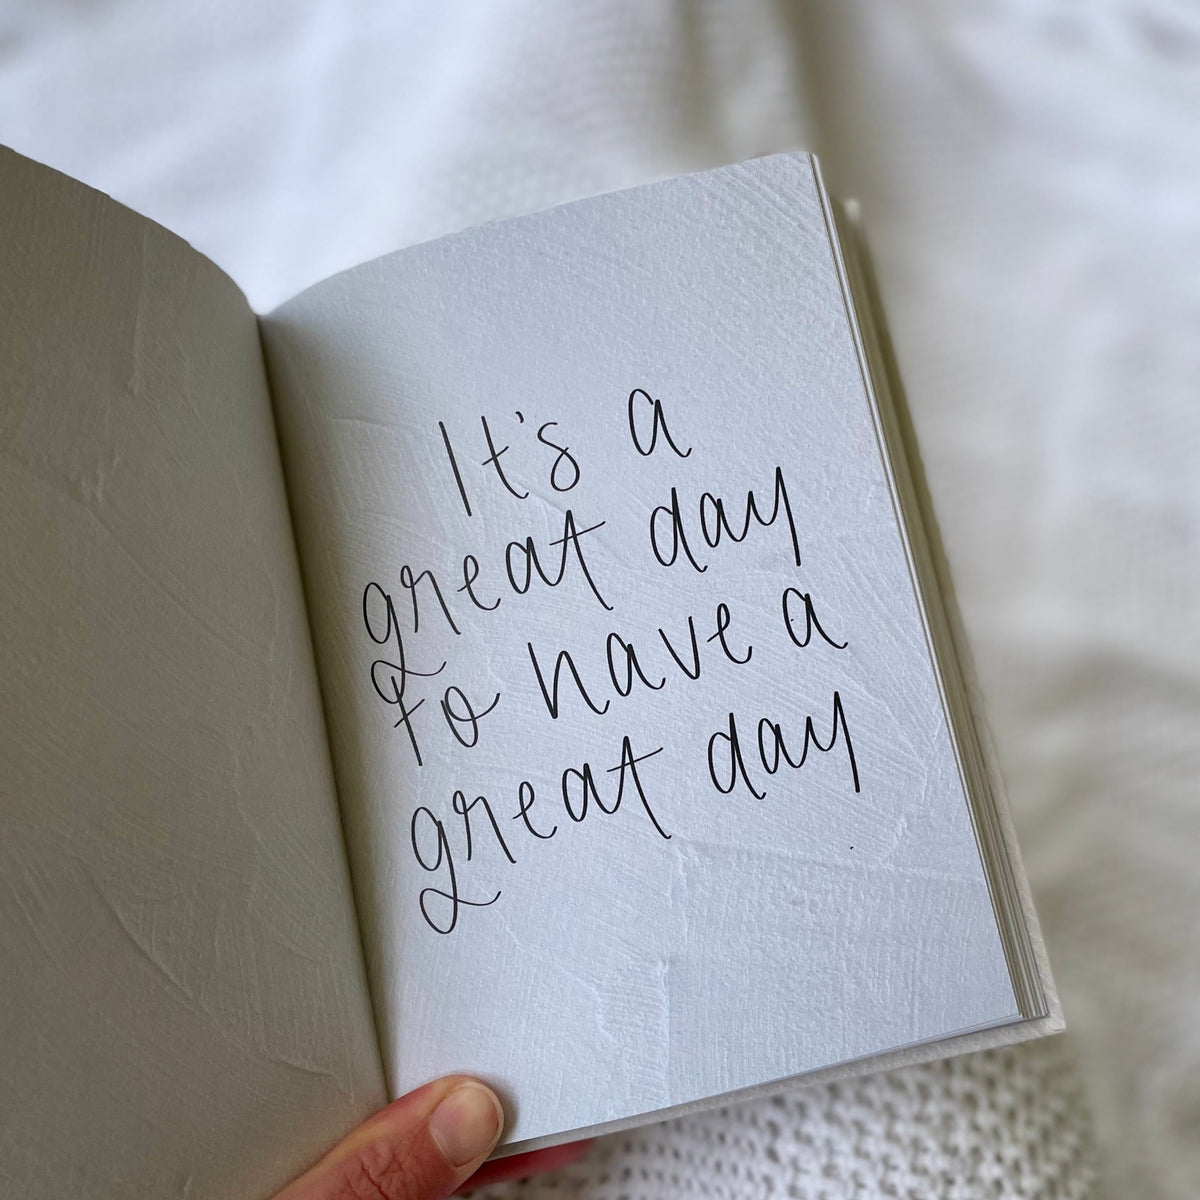 It's a
great day
to have a
great day